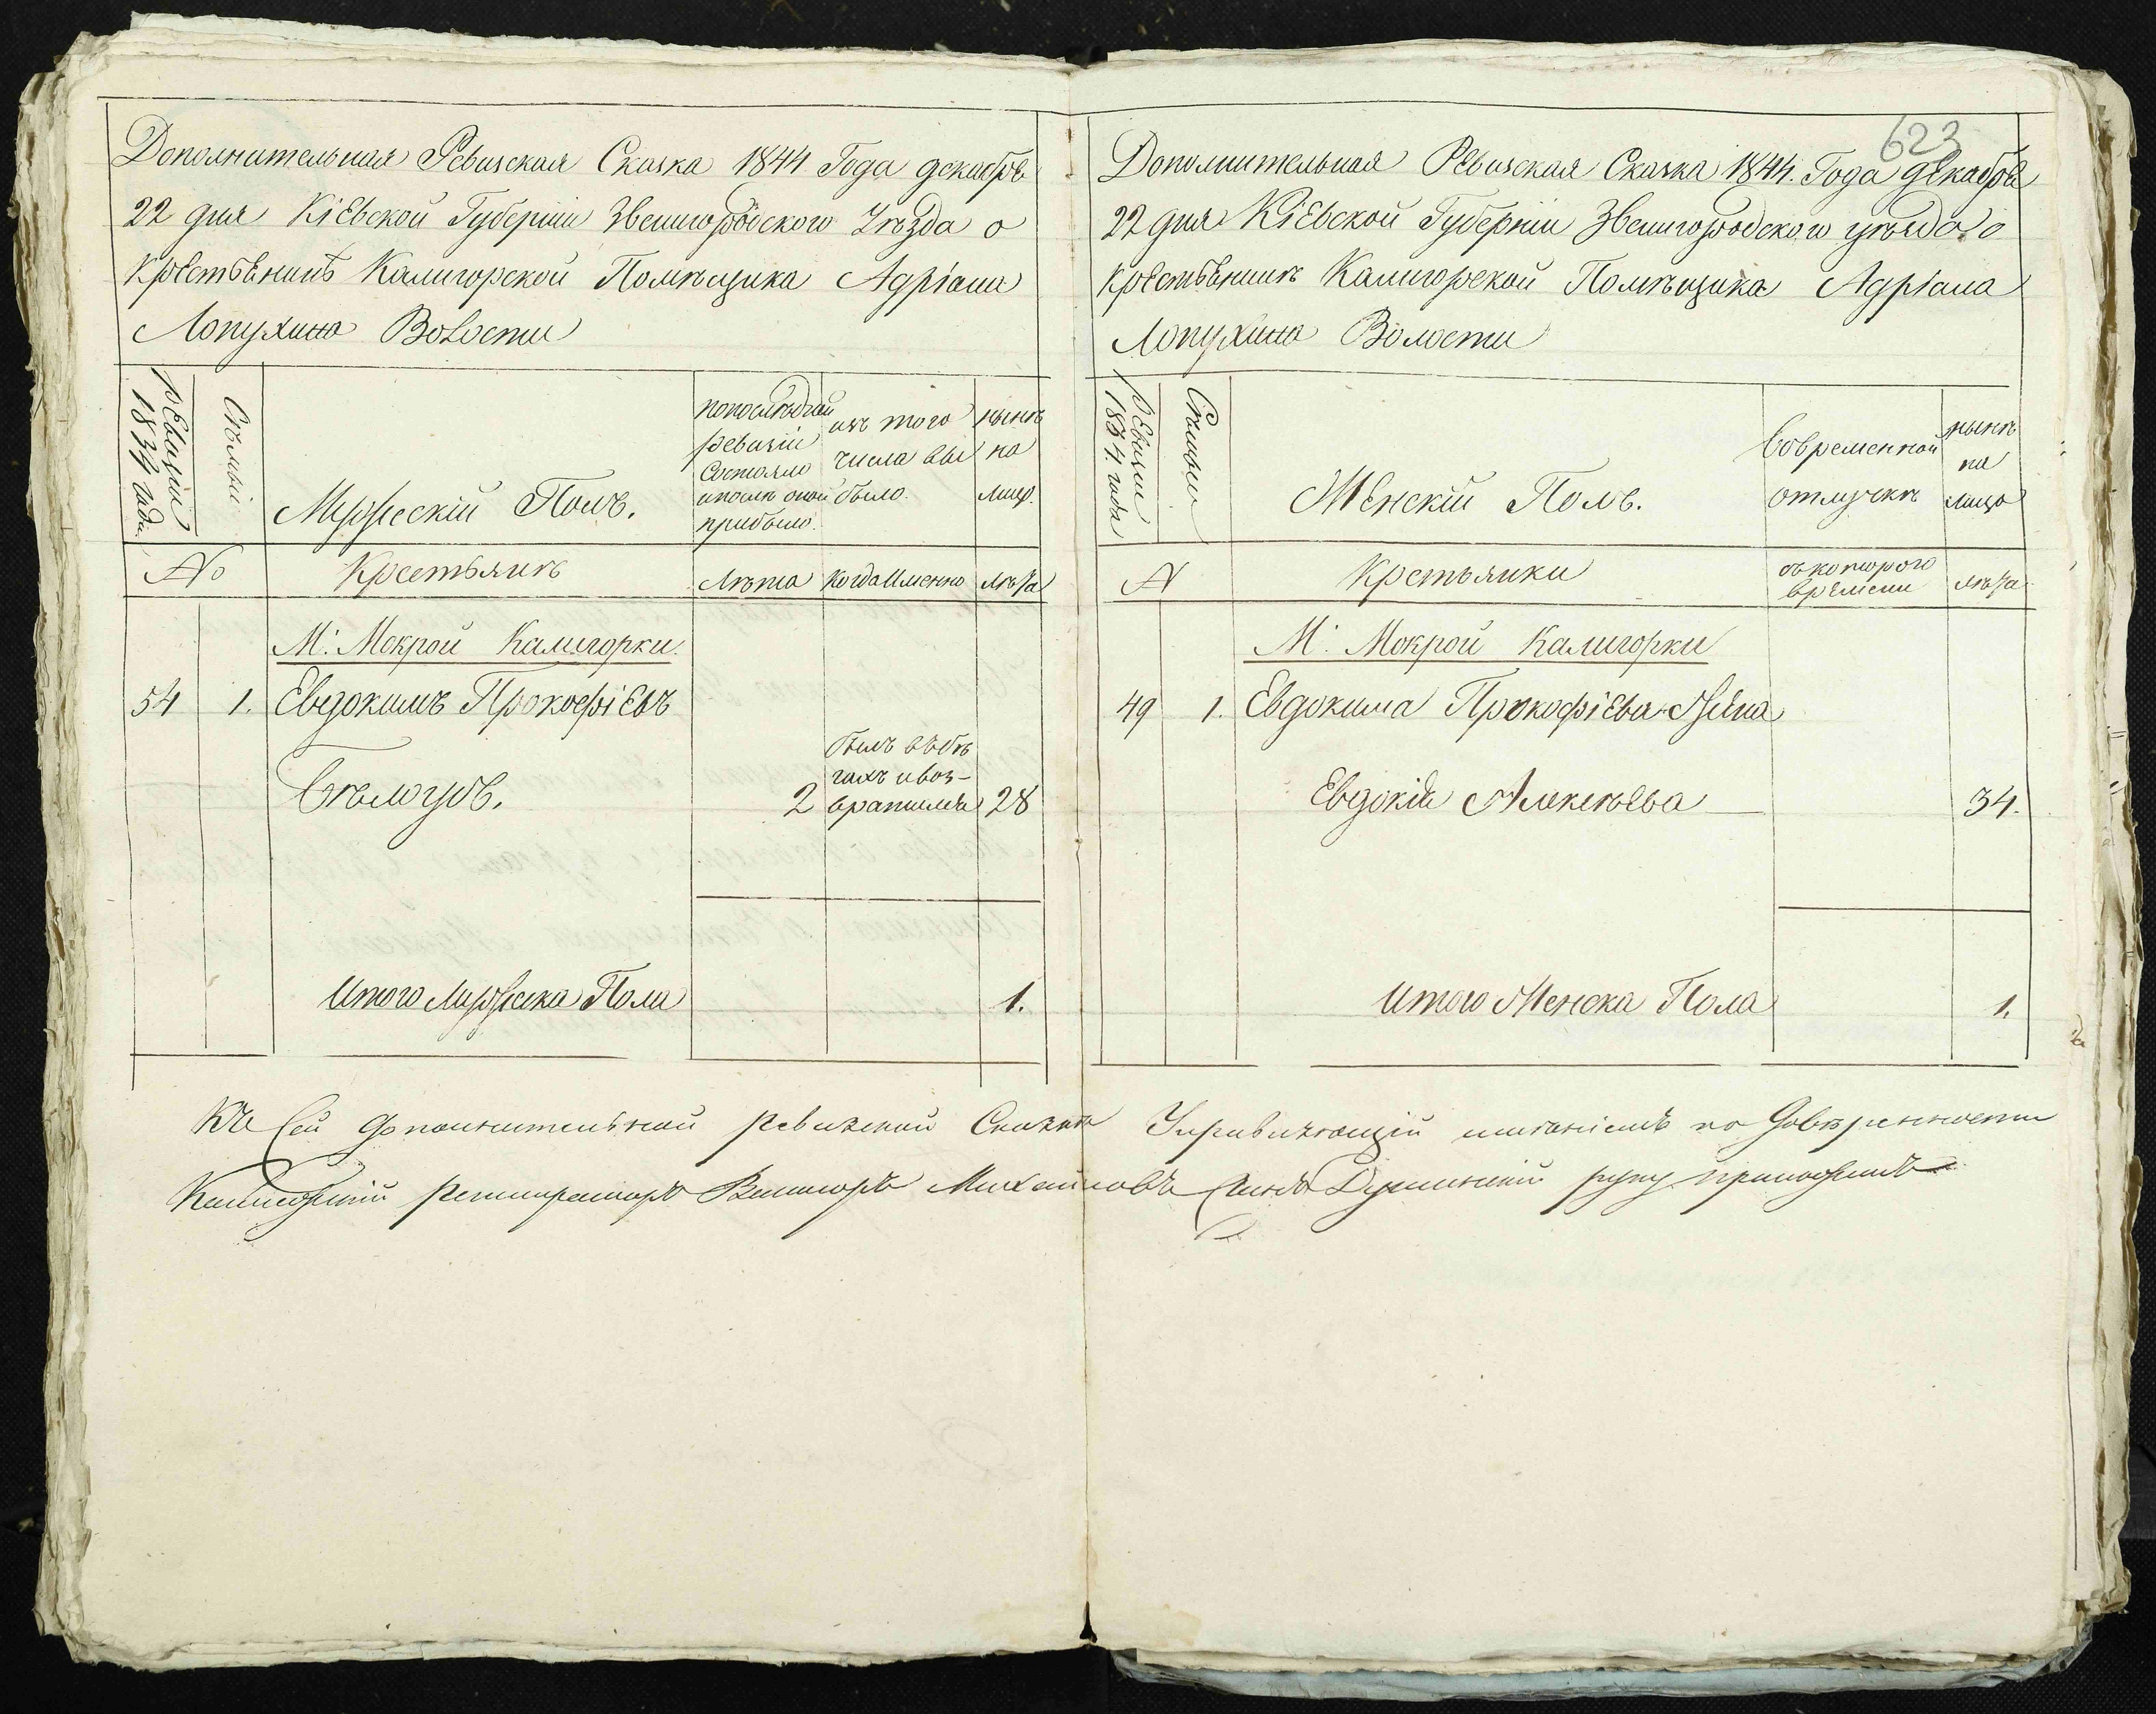 623
Дополнительная Ревизская Сказка 1844 Года декабря
22 дня Кіевской Губерніи Звенигородского Уѣзда о
Крестьянинѣ Калигорской Помѣщика Адріана
Лопухина Волости
ревизіи 1834 года
Сѣмьи
Мужескій Полъ.
по последней
ревизіи
Состояло
и после оной
прибыло.
изъ того
числа вы
было.
нынѣ
на
лицо.
№
Крестьянѣ
Лѣта
Когда Именно
лѣта
М: Мокрой Калигорки.
54 1. Евдокимъ Прокофіевъ
былъ въ бѣ
гахъ и воз-
Бѣлоусъ. 2 вратился 28
Итого Мужеска Пола 1.
Дополнительная Ревизская Сказка 1844. Года декабря
22 дня Кіевской Губерніи Звенигородского уѣзда о
Крестьянинѣ Калигорской Помѣщика Адріана
Лопухина Волости
ревизіи 1834. года
Сѣмьи
Женскій Полъ.
Вовременной
отлучкѣ
нынѣ
на
лицо
№
Крстьянки
съ которого
времени
лѣта
М: Мокрой Калигорки
49 1. Евдокима Прокофіева Жена
Евдокія Алексѣева 34.
Итого Женска Пола 1.
Къ сей дополнительной ревизской Сказкѣ Управляющій имѣніемъ по Довѣренности
Коллежскій регистраторъ Викторъ Михайловъ Сынъ руку приложилъ